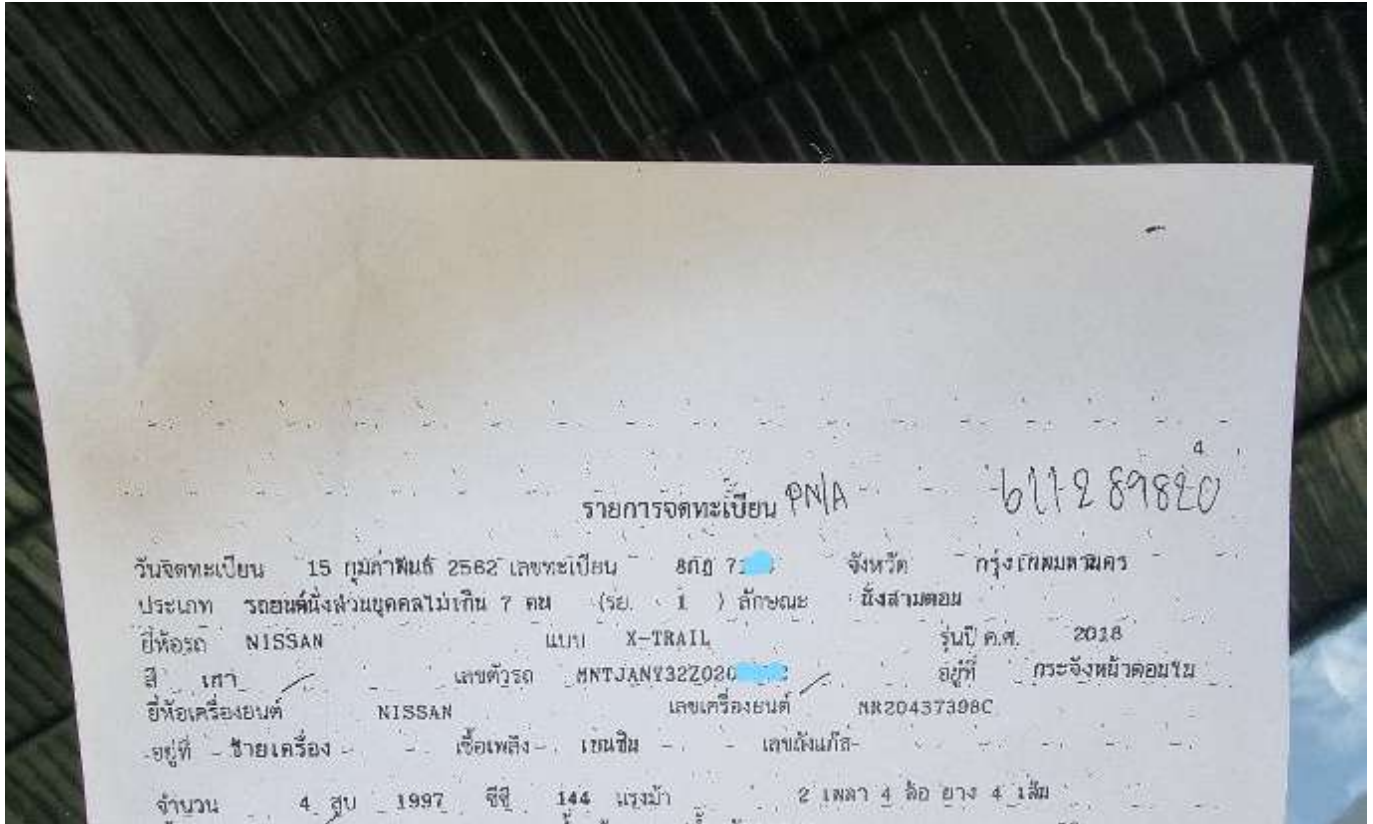 4
รายการจดทะเบียน PN/A 611289820
วันจดทะเบียน 15 กุมภาพันธ์ 2562 เลขทะเบียน 8กฎ 7 จังหวัด กรุงเทพมหานคร
ประเภท รถยนต์นั่งส่วนบุคคลไม่เกิน 7 คน (รย. 1 ) ลักษณะ นั่งสามตอน
ยี่ห้อรถ NISSAN แบบ X-TRAIL รุ่นปี ค.ศ. 2018
สี เทา เลขตัวรถ MNTJANY32Z020 อยู่ที่ กระจังหน้าตอนใน
ยี่ห้อเครื่องยนต์ NISSAN เลขเครื่องยนต์ MR20437398C
อยู่ที่ ซ้ายเครื่อง เชื้อเพลิง เบนซิน เลขถังแก๊ส
จำนวน 4 สูบ 1997 ซีซี 144 แรงม้า 2 เพลา 4 ล้อ ยาง 4 เส้น